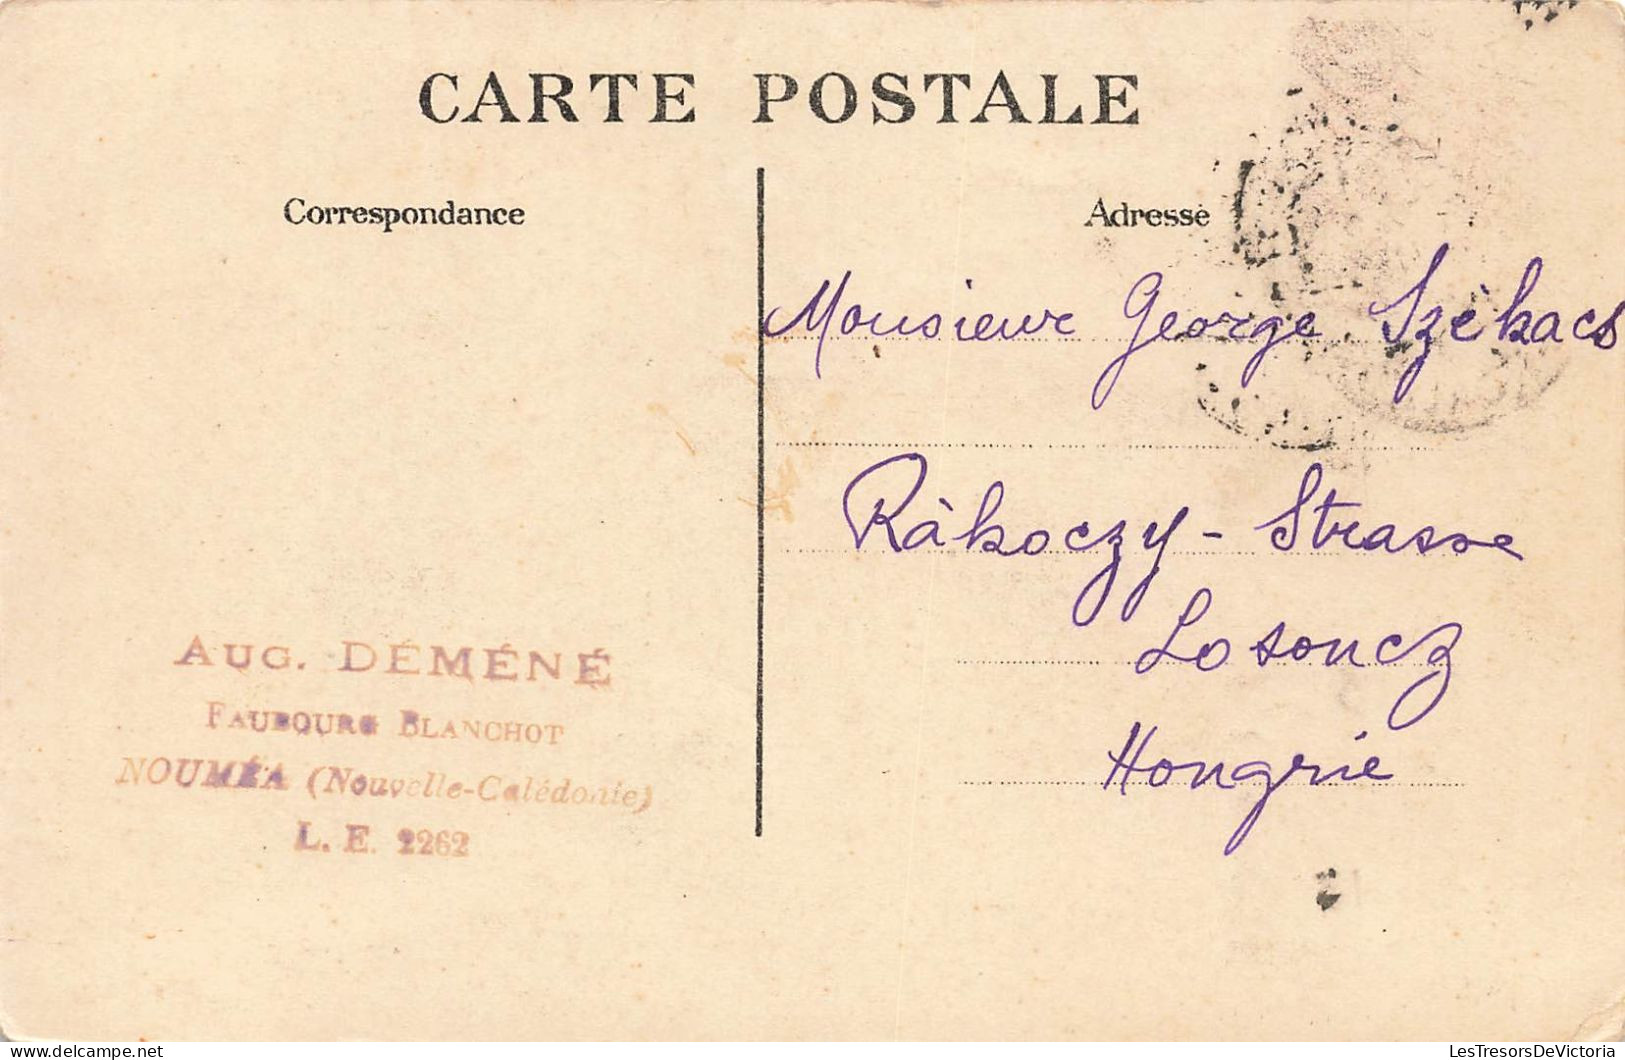 CARTE POSTALE
Correspondance
Adresse
Monsieur George Szèkacs
Ràkoczy - Strasse
Losoncz
Hongrie
AUG. DÉMÉNÉ
FAUBOURG BLANCHOT
NOUMÉA (Nouvelle-Calédonie)
L. E. 2262
delcampe.net
LesTresorsDeVictoria